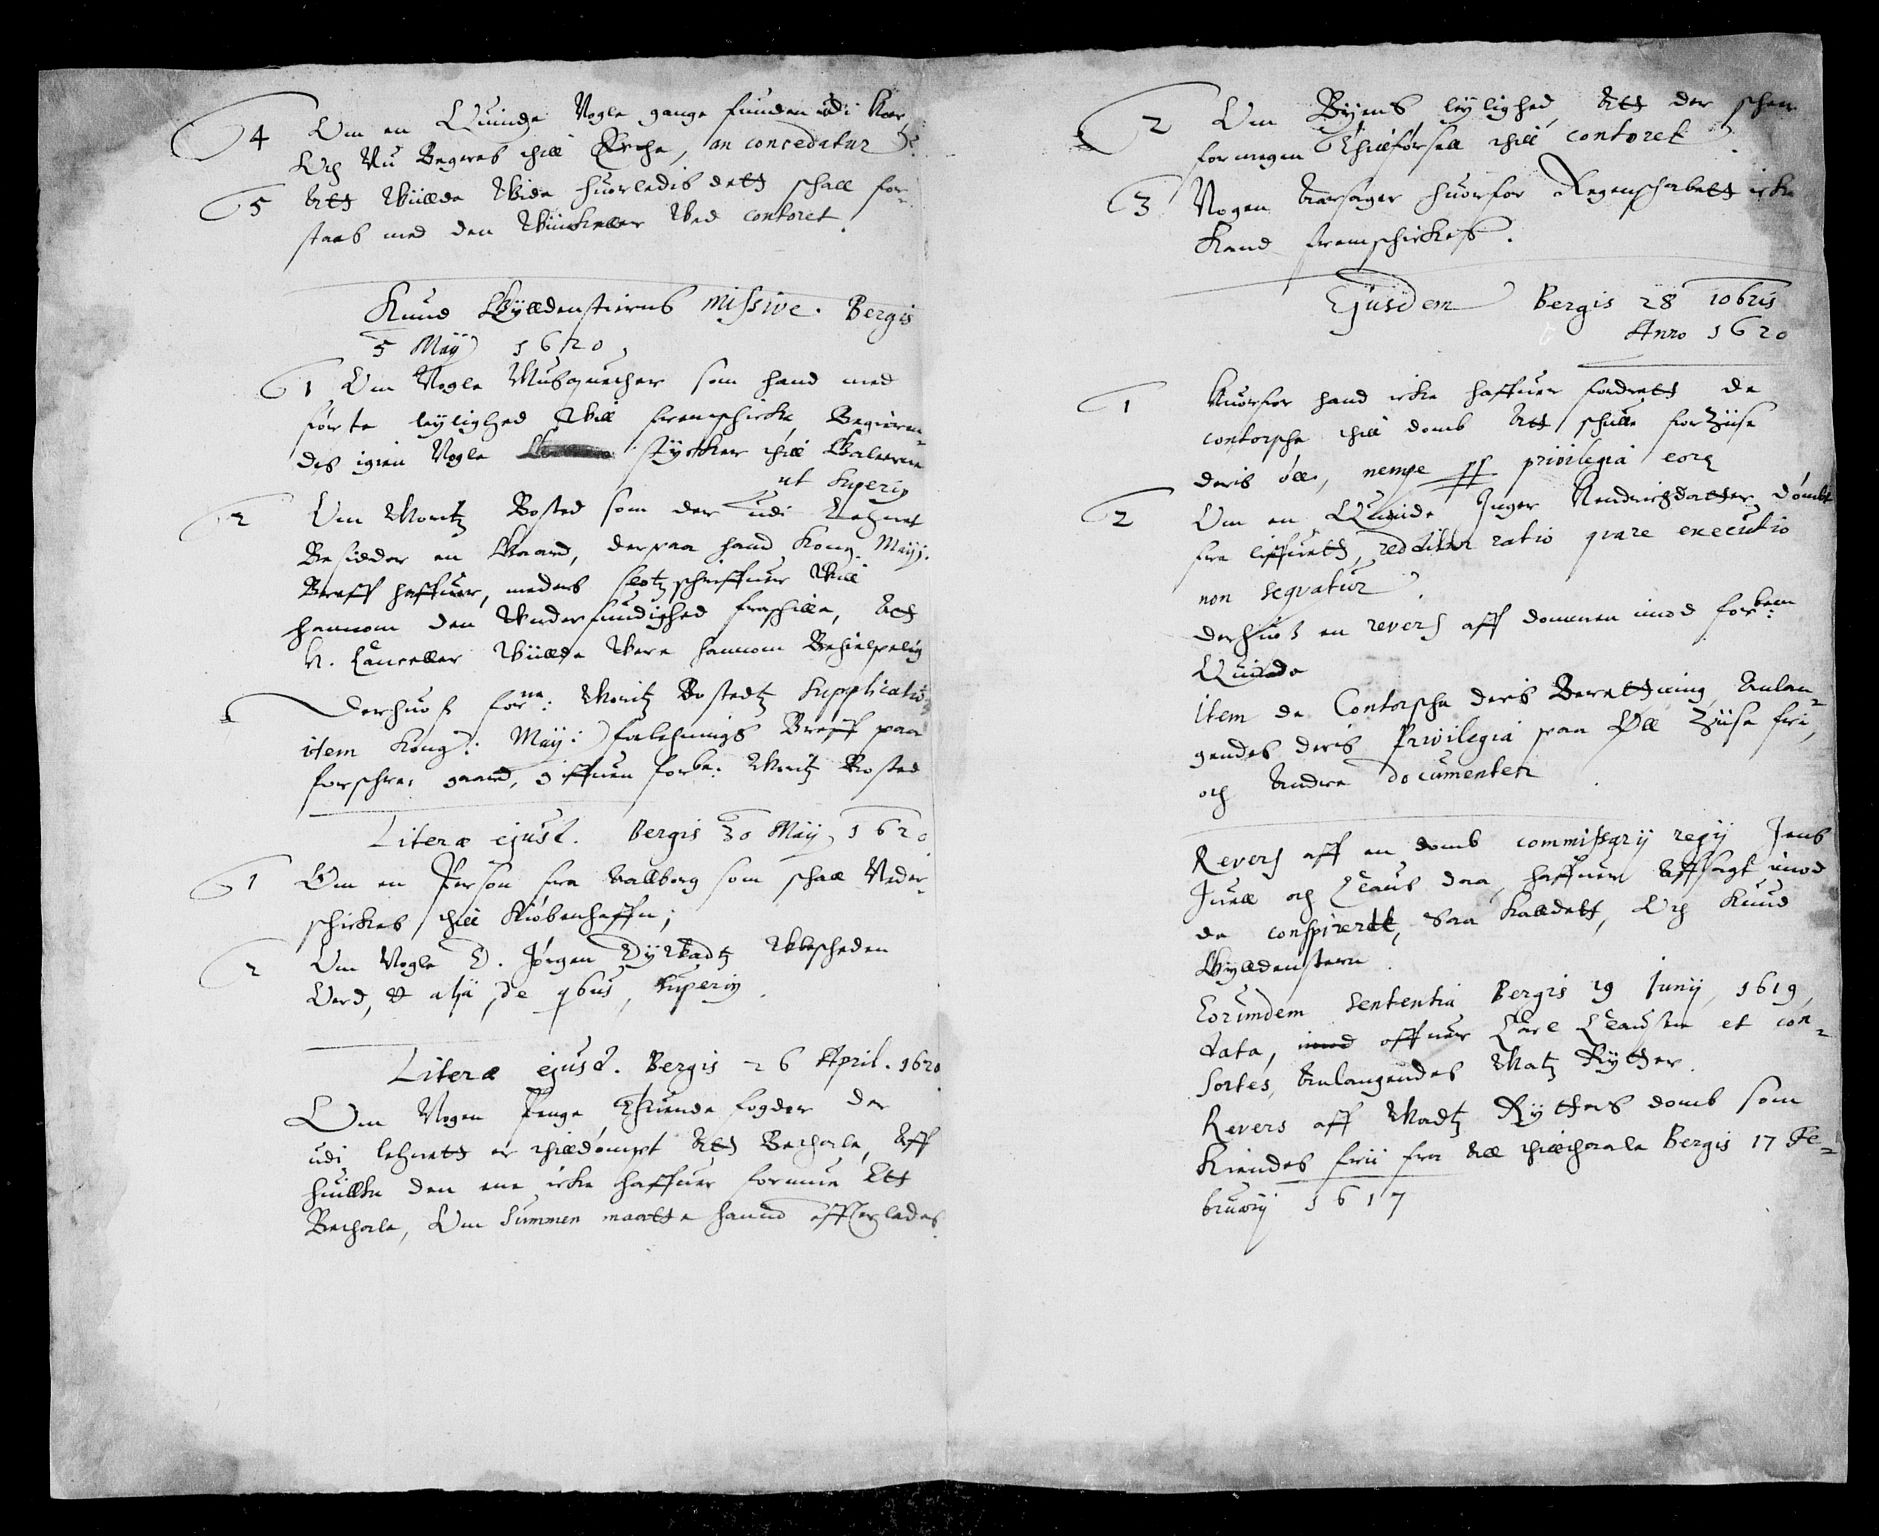 4 Om en Quinde Nogle gange funden udi Hoer
Och Nu Begeres thill Ecthe, an concedatur ec.
5 Att Willde Wide huorledis dett schall for-
staas med den Winkeller Wed contoret.
Knud Gylldenstierns Missive. Bergis
5 Maij 1620,
1 Om Nogle Musquether som hand med
første leylighed Will fremschicke, Begieren-
des igien Nogle stycker thill Galeierne
ut superiꝰ
2 Om Moritz Bosted som der udi Lehnet
Besidder en Gaard, derpaa hand Kong. Maijs.
Breff haffuer, medens slotzschriffuer Will
hannom den Wnder fundighed frahille, Att
H. Canceller Willde Were hannom Behielpelig
Derhuos forne: Moritz Bostedtz Supplicatio,
item Kong: Maij: forlehnings Breff paa
forschre: gaard, giffuen forbe: Moritz Bosted
Literæ ejusd. Bergis 30 Maij, 1620
1 Om en Person fra Aallborg som schall Neder-
schickes thill Kiøbenhaffn;
2 Om Nogle D. Jørgen Dybvadtz Wbescheden
Ord, et alia, de qbus, superiꝰ.
Literæ ejusd. Bergis 26 April. 1620
Om Nogen Penge Thiende fogder der
udi lehnett er thilldømpt Att Bethale, Aff
huillke den ene icke haffuer formue Att
Bethale, Om Summen maatte hannd efterlades.
2 Om Byens leylighed, Att der scheer
formegen Thillførsell thill contoret
3 Nogen Aarsager huorfor Regenschabett icke
Kand fremschickes.
Ejusdem Bergis 28 10bris
Anno 1620
1 Huorfor hand icke haffuer fordrett de
contorsche thill domb Att schulle forZiise
deris øll, nempe privilegia eorꝫ
2 Om en Quinde Inger Hendrichsdatter dømbt
fra liffuett, redditur ratio quare executio
non sequatur.
Derhuos en revers aff dommen imod forbem:
Quinde
Item de Contorsche deris Berettning, Anlan-
gendes deris Privilegia paa Øll Ziise fri,
och Andre documenter
Revers aff en domb commissarij regij Jens
Juell och Claus daa, haffuer Affsagt imod
de conspirerte, saa kalldett, Och Knud
Gylldenstern
Eorundem sententia Bergis 19 Junij, 1619,
data, imod offuer Carl Clausen et con-
sortes, Anlangendes Matz Rytter.
Revers aff Madtz Rytters domb som
Kiendes frii fra All thilltaale Bergis 17 Fe-
bruarij 1617